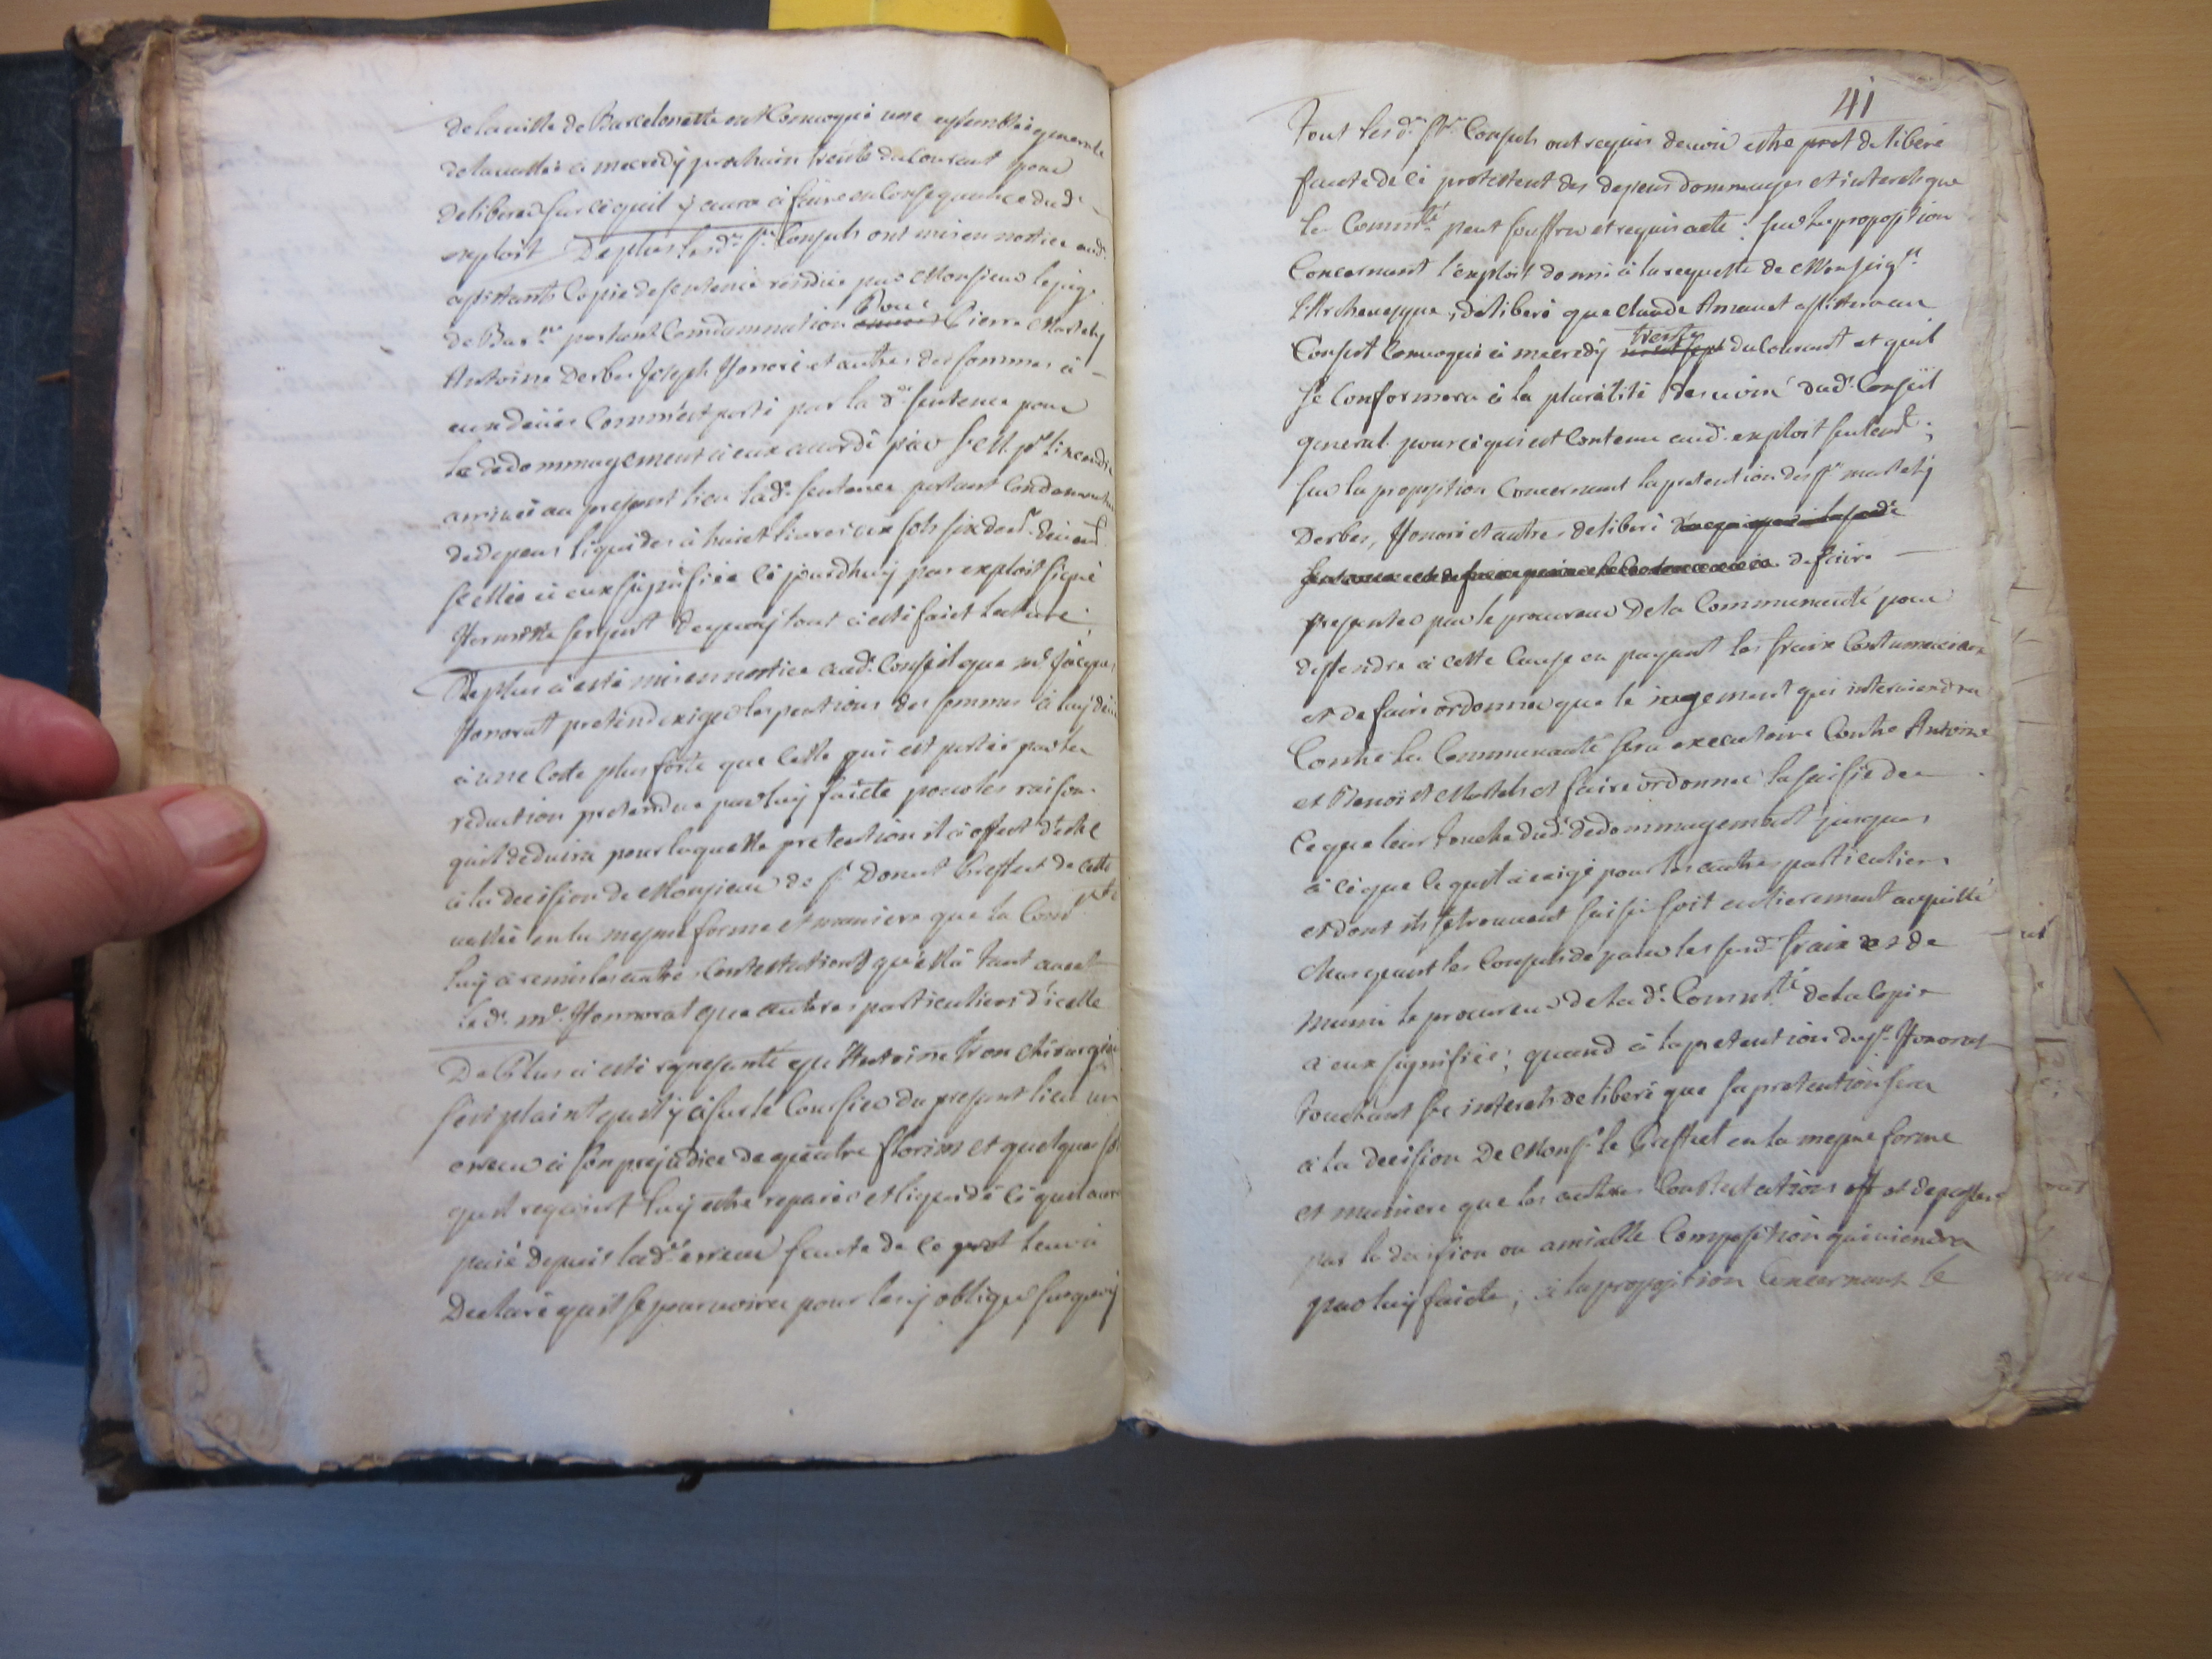 de la ville de Barcelonette ont Convoqué une assemblée generale
de la vallée à mecredÿ prochain trente du Courant pour
deliberer sur ce quil ÿ aura à faire en Consequence dud.
exploit De plus les d.ts S.rs Consuls ont mis en nottice aud.
assistants Copie de sentence rendüe par Monsieur le juge
de Bar.ne portant Condamnation pour Pierre Martelÿ
Antoine Derbes Joseph Honoré et autres des sommes à
eux deües Comm'est porté par la d.te sentence pour
le dedommagement à eux accordé par S.M. p.r l'incendie
arrivée au present lieu lad.e sentence portant Condamnation
de depens liquidés à huict livres six sols six den.rs
scellée à eux signifiée ce jourdhuy par exploit signé
Hermitte sergent de quoÿ tout à esté faict lecture
De plus à esté mis en nottice aud. Conseil que m.e Jacques
Honorat pretend exiger les pentions des sommes à luÿ deües
à une Cotte plus forte que Celle qui est portée par la
reduction pretendue par luÿ faicte pour les raisons
quil deduira pour laquelle pretention il à offert d'estre
à la decision de Monsieur de S.t Donat Preffect de Cette
vallée en la mesme forme et maniere que la Com.té
luÿ à remis les autres Contestations qu'ellà tant avec
le d. m.e Honnorat que autres particuliers d'icelle
De Plus à esté representé qu'Anthoine Tron Chirurgien
s'est plaint quil ÿ à sur le Coursier du present lieu un
erreur à son prejudice de quatre florins et quelques sols
quil requiert luÿ estre reparée et liquidé ce quil aura
paié depuis lad.e erreur faute de ce
Declaré quil se pourvoira pour les ÿ obliger sur quoÿ
41
Tout les d.ts S.rs Consuls ont requis devoir estre p.nt deliberé
faute de ce protestent des depens dommages et interets que
la Commté peut souffrir et requis acte. sur la proposition
Concernant l'exploit donné à la requette de Monseig.r
l'Archevesque, deliberé que Claude Arnaud assistera au
Conseil Convoqué à mecredÿ trente du Courant et quil
se Conformera à la pluralité des voix dud. Conseil
general pour ce qui est Contenu aud. exploit seulem.t;
sur la proposition Concernant la pretention des S.rs martelÿ
Derbes, Honoré et autres deliberé
de faire
presenter par le procureur de la Communauté pour
deffendre à cette Cause en payant les fraix Contumaciaux
et de faire ordonner que le jugement qui interviendra
Contre la Communauté sera executoire Contre Antoine
et Benoist Martels et faire ordonner la saisie de
Ce que leur touche dud. dedommagement jusques
à ce que le quil à exigé pour les autres particuliers
et dont ils se trouvent saisis soit entierement acquitté
Chargeant les Consuls de paier les susd. fraix et de
munir le procureur de la d. Commté de la Copie
à eux signifiée; quand à la pretention du S.r Honorat
touchant ses interets deliberé que sa pretention sera
à la decision De Mons.r le Preffect en la mesme forme
et maniere que les autres Contestations et de passer
par la decision ou amiable Composition qui viendra
par luÿ faicte; à la proposition Concernant le